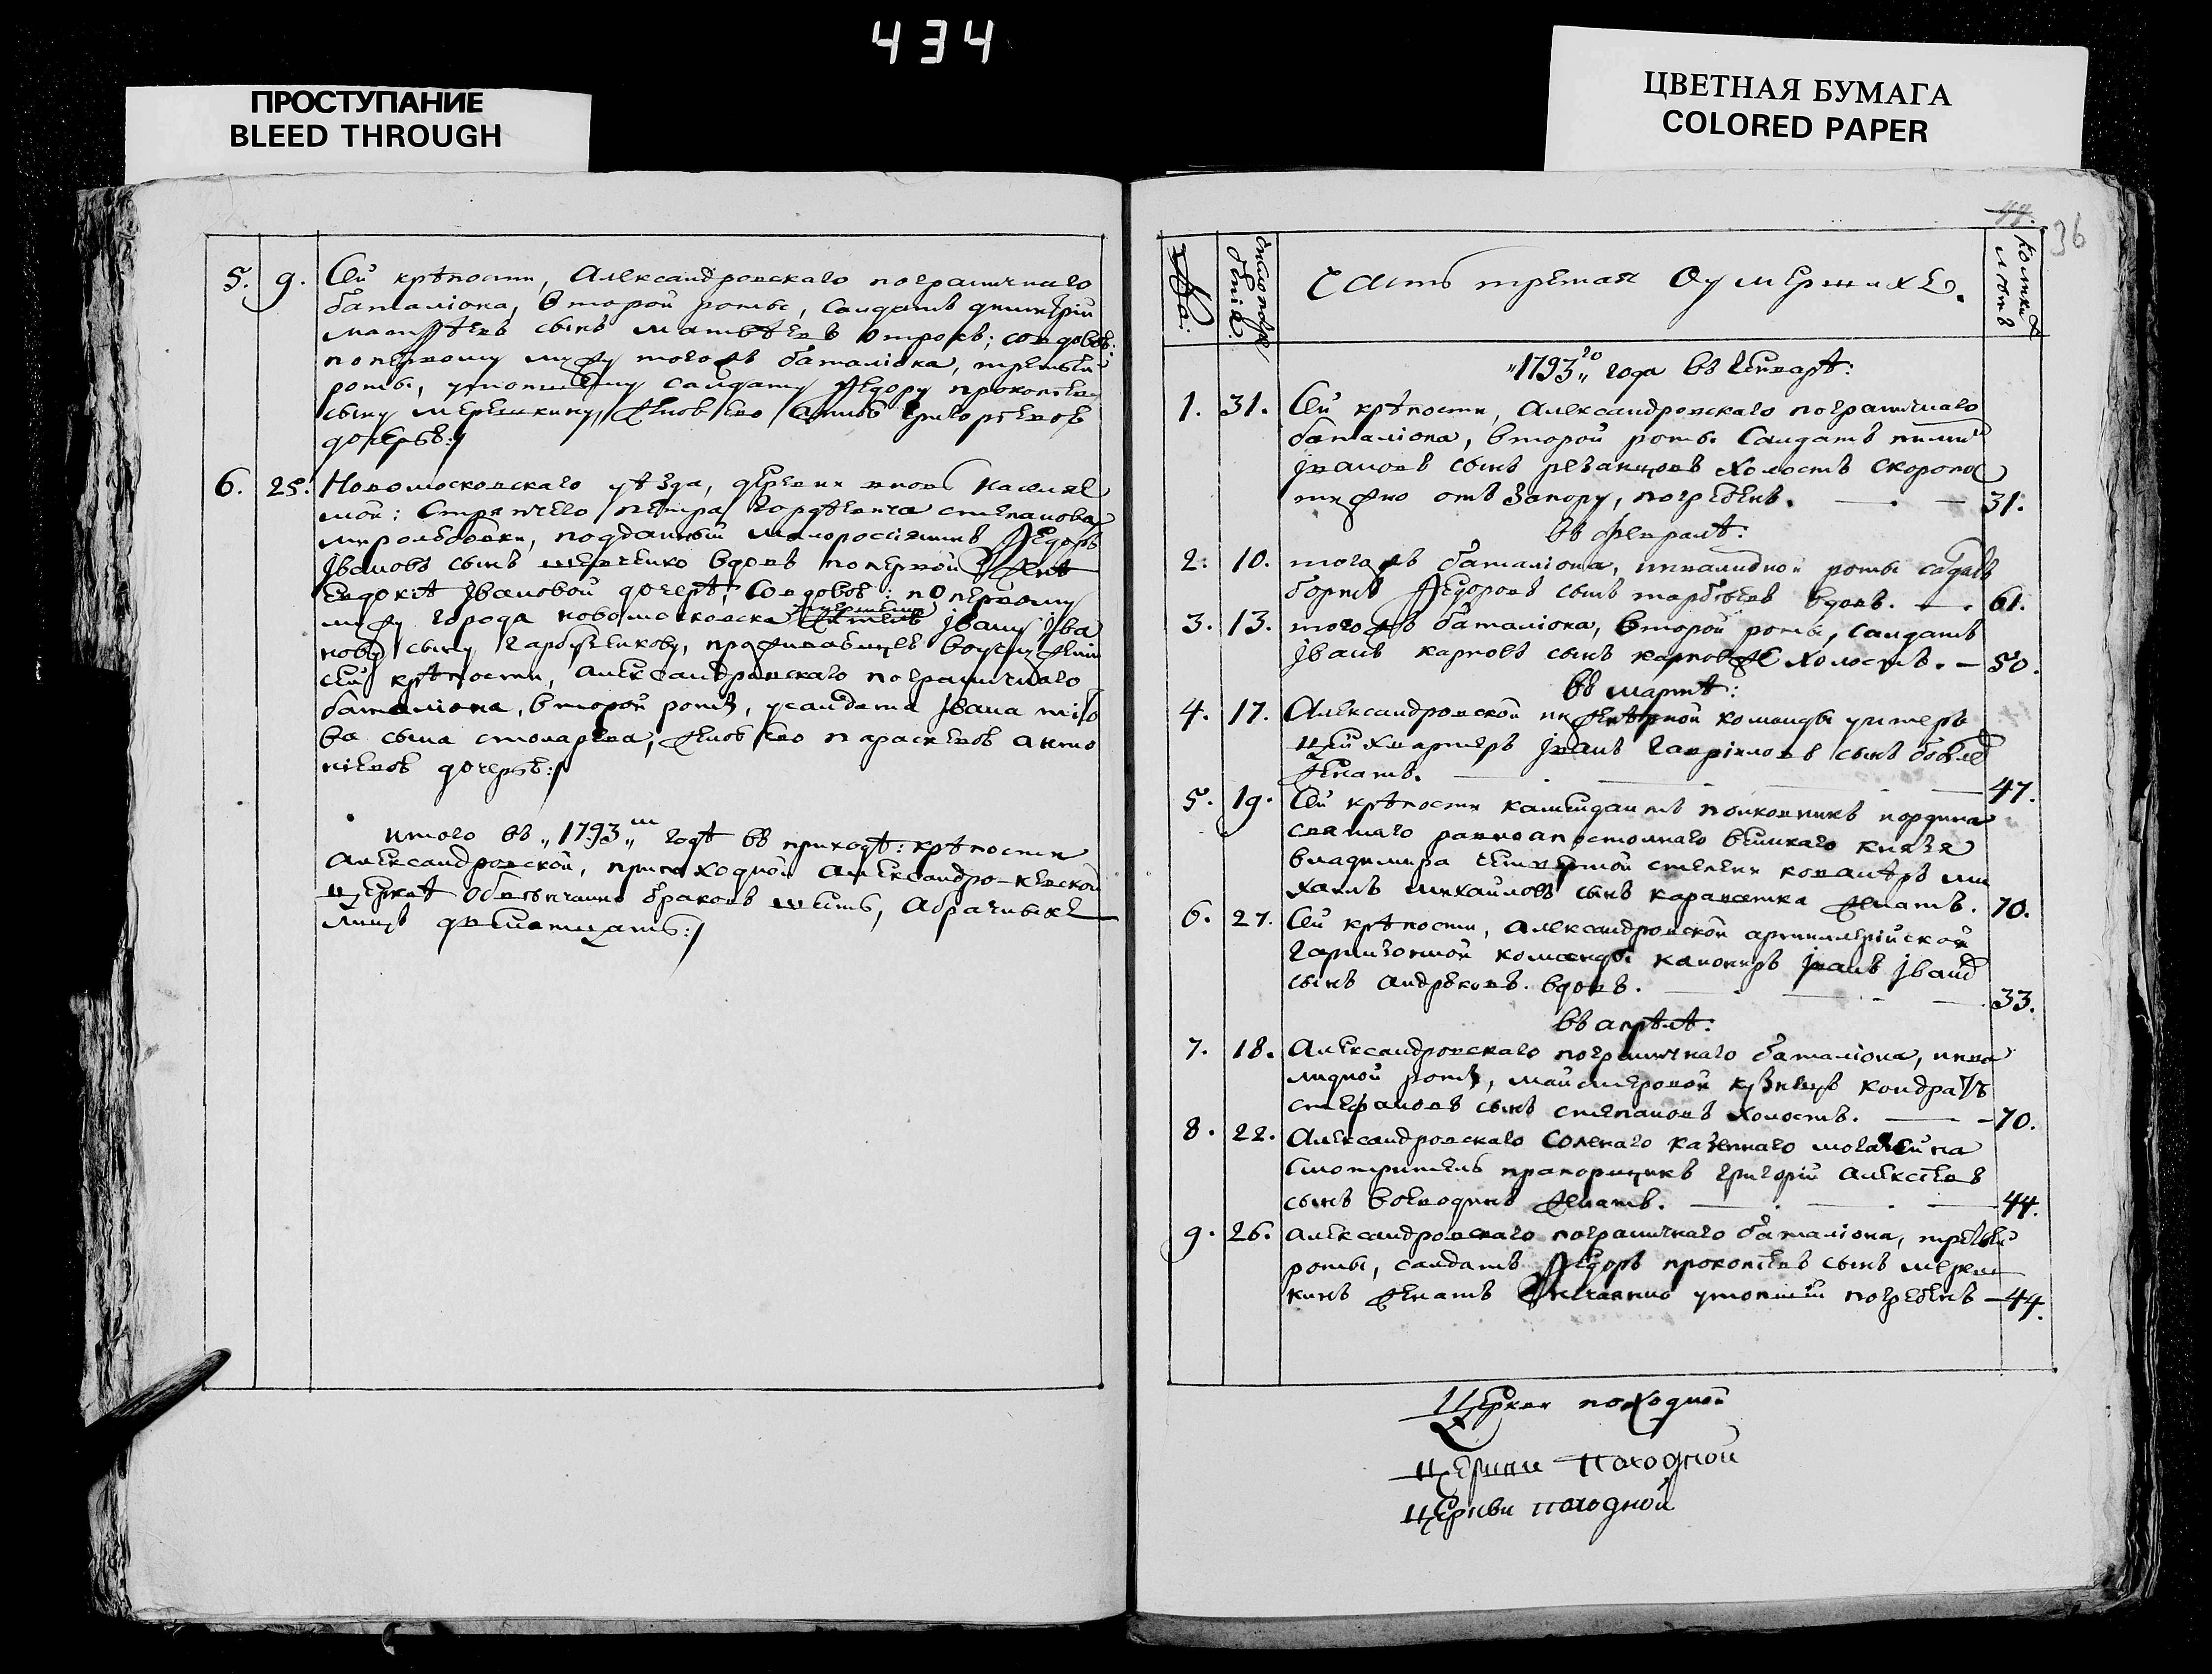 434
ПРОСТУПАНИЕ
BLEED THROUGH
ЦВЕТНАЯ БУМАГА
COLORED PAPER
5. 9. Сей крѣпости, Александровскаго пограничнаго
баталіона, второй роты, салдатъ димитрій
матѳѣевъ сынъ отрокъ; совдовою:
поперьвому мужу тогожъ баталіона, третьей
роты, утопшему салдату Ѳедору прокопіеву
сыну мерешкину, женою ево григоріевою
дочерью:
6. 25. Новомосковскаго уѣзда, деревни вновь населяе
мой: Стряпчего петра гордѣевича степанова
подданный малороссіянинъ Ѳедоръ
Ивановъ сынъ шевченко вдовъ поперьвой женѣ
евдокіѣ Ивановой дочерѣ, совдовою: поперьвому
мужу города новомосковска Ивану Ива
нову сыну проживающей воуслуженіи
сей крѣпости, александровскаго пограничнаго
баталіона, второй роты, усалдата Ивана
ва сына столарева, женою ево параскевою анто
ніевою дочерью:
итого въ „1793„ м годѣ въ приходѣ: крѣпости
Александровской, при походной александро-невской
церквѣ обвѣнчанно браковъ шесть, абрачившихся
лицъ двенатцать:
44. 36
Числа
Сколкихъ
лѣтъ
Часть третая Оумершихъ.
„1793„ го года въ Генварѣ:
1. 31. Сей крѣпости, Александровскаго пограничнаго
баталіона, второй роты салдатъ
Ивановъ сынъ резанцовъ холостъ скоропос
тижно отъ запору, погребенъ. — 31.
въ февралѣ:
2: 10. тогожъ баталіона, инвалидной роты салдатъ
борисъ Ѳедоровъ сынъ вдовъ. — 61.
3. 13. тогожъ баталіона, второй роты, салдатъ
Іванъ карповъ сынъ холостъ. — 50.
въ мартѣ:
4. 17. Александровской инженерной команды унтеръ
цейхвартеръ Іванъ гавріиловъ сынъ
женатъ. — 47.
5. 19. Сей крѣпости камендантъ полковникъ иордина
святаго равноапостолнаго великаго князя
владимира четвертой степени ковалѣръ ми
хаилъ михайловъ сынъ караватка женатъ. 70.
6. 27. Сей крѣпости, александровской артиллерійской
гарнизонной команды канониръ Іванъ Іванов
сынъ андрѣковъ. вдовъ. — 33.
въ апрѣлѣ:
7. 18. Александровскаго пограничнаго баталіона, инва
лидной роты, майстеровой кузнецъ кондратъ
стефановъ сынъ степановъ холостъ. — 70.
8. 22. Александровскаго солянаго казеннаго магазейна
смотритель прапорщикъ григорій алексіевъ
сынъ воеводинъ женатъ. — 44.
9. 26. александровскаго пограничнаго баталіона, третьей
роты, салдатъ Ѳедоръ прокопіевъ сынъ мереш
кинъ женатъ нечаянно утопшій погребенъ — 44.
Церкви походной
церкви походной
церкви походной